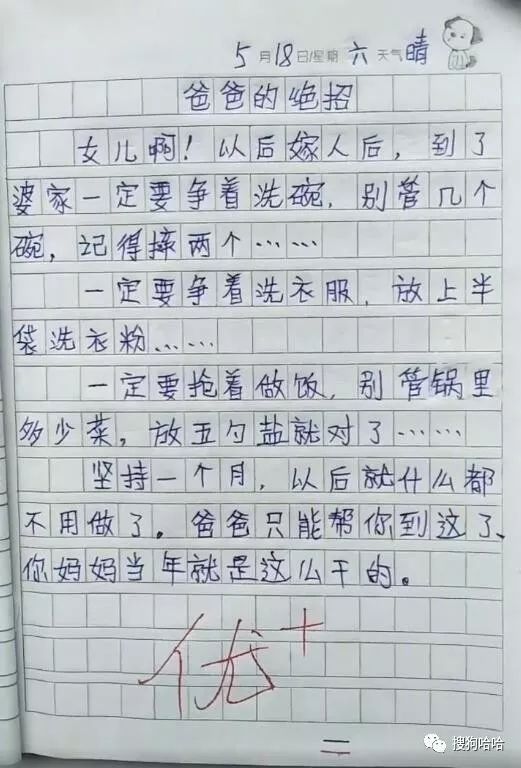 5月18日/星期 六 天气 晴
爸爸的绝招
女儿啊！以后嫁人后，到了
婆家一定要争着洗碗，别管几个
碗，记得摔两个……
一定要争着洗衣服，放上半
袋洗衣粉……
一定要抢着做饭，别管锅里
多少菜，放五勺盐就对了……
坚持一个月，以后就什么都
不用做了。爸爸只能帮你到这了、
你妈妈当年就是这么干的。
优+
搜狗哈哈